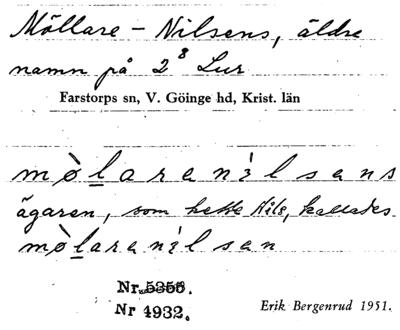 Möllare - Nilsens, äldre
namn på 2⁸ Lur
Farstorps sn, V. Göinge hd, Krist. län
mòlarenilsens
ägaren, som hette Nils, kallades
mòlarenilsen
Nr. 5356.
Nr 4932.
Erik Bergenrud 1951.